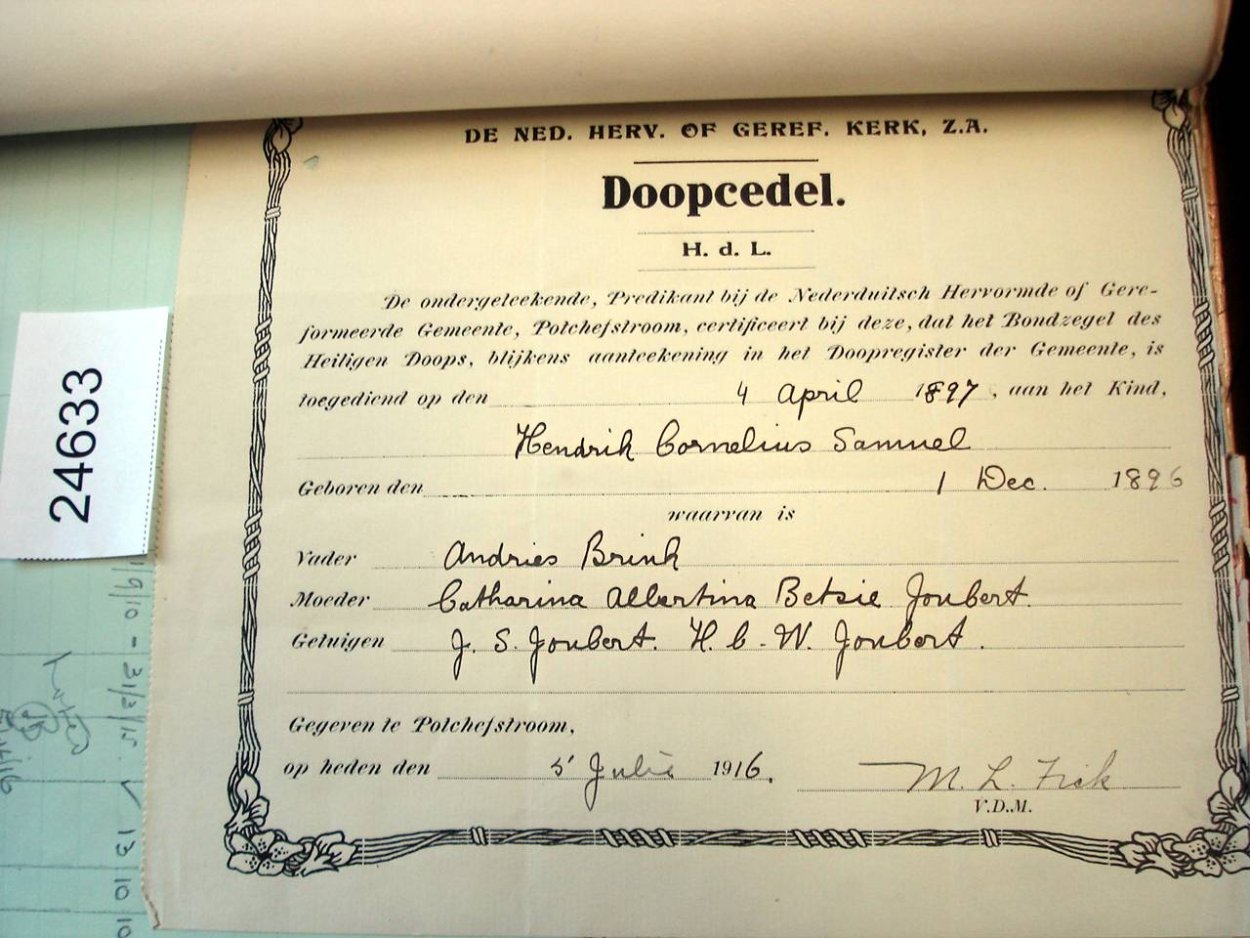 DE NED. HERV. OF GEREF. KERK, Z.A.
Doopcedel.
H. d. L.
De ondergeteekende, Predikant bij de Nederduitsch Hervormde of Gere-
formeerde Gemeente, Potchefstroom, certificeert bij deze, dat het Bondzegel des
Heiligen Doops, blijkens aanteekening in het Doopregister der Gemeente, is
toegediend op den 4 April 1897, aan het Kind,
Hendrik Cornelius Samuel
Geboren den 1 Dec. 1896
waarvan is
Vader Andries Brink
Moeder Catharina Albertina Betsie Joubert.
Getuigen J. S. Joubert. H. C. W. Joubert.
Gegeven te Potchefstroom,
op heden den 5 Julie 1916.
M. L. Fick
V.D.M.
24633
1/9/10 - 31/3/15 ✓ 13/10/10